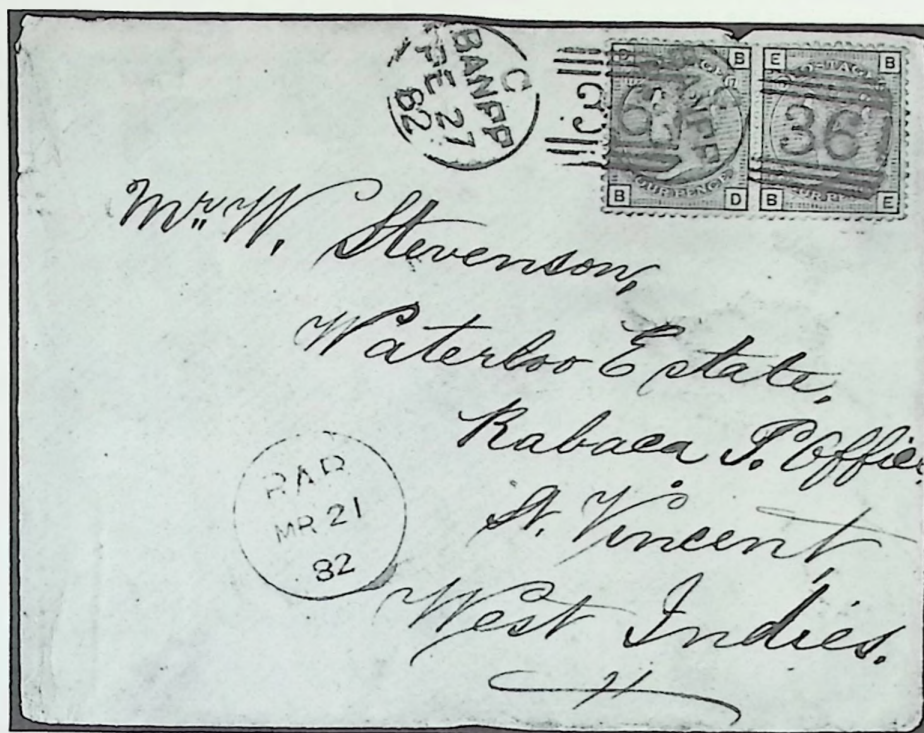 C
BANFF
FE 27
82
B
FOUR PENCE
B D
E B
POSTAGE
361
B E
Mr. W. Stevenson,
Waterloo Estate,
Rabaca P. Office
St. Vincent,
West Indies.
RAB
MR 21
82